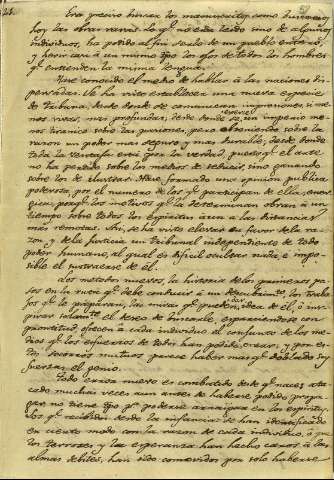 Era preciso buscar los manuscritos como buscamos
hoy las obras raras. Lo q.e no era leido sino de algunos
individuos, ha podido al fin serlo de un pueblo entero,
y herir casi á un mismo tpo los ojos de todos los hombres
q.e entienden la misma lengua.
Hase conocido el medio de hablar á las naciones dis-
persadas. Se ha visto establecer una nueva especie
de tribuna, desde donde se comunican impresiones, me-
nos vivas, mas profundas; desde donde se ejerce un imperio me-
nos tiranico sobre las pasiones, pero obteniendo sobre la
razon un poder mas seguro y mas durable; desde donde
toda la ventaja está por la verdad, puesto q.e el arte
no ha perdido sobre los medios de seducir, sino ganando
sobre los de ilustrar. Hase formado una opinion publica
poderosa por el numero de los q.e participan de ella; ener-
gica porq.e los motivos q.e la determinan obran á un
tiempo sobre todos los espiritus aun á las distancias
mas remotas. Asi, se ha visto elevar en favor de la ra-
zon y de la justicia un tribunal independiente de todo
poder humano, al qual es dificil ocultar nada, é impo-
sible el sustraerse de él.
Los metodos nuevos, la historia de los primeros pa-
sos en la ruta q.e debe conducir á un descubrim.to, los traba-
jos q.e le preparan, las miras q.e pueden dar idea de él, ó ins-
pirar solam.te el deseo de buscarle, esparciendose con
prontitud, ofrecen á cada individuo el conjunto de los me-
dios q.e los esfuerzos de todos han podido crear; y por es-
tos socorros mutuos parece haber mas q.e doblado sus
fuerzas el genio.
Todo error nuevo es combatido desde q.e nace: ata-
cado muchas veces aun antes de haberse podido propa-
gar no tiene tpo p.a poderse arraigar en los espiritus.
Los q.e recibidos desde la infancia se han identificado
en cierto modo con la razon de cada individuo, ó q.e
los terrores y la esperanza han hecho caros á las
almas debiles, han sido conmovidos por solo haberse